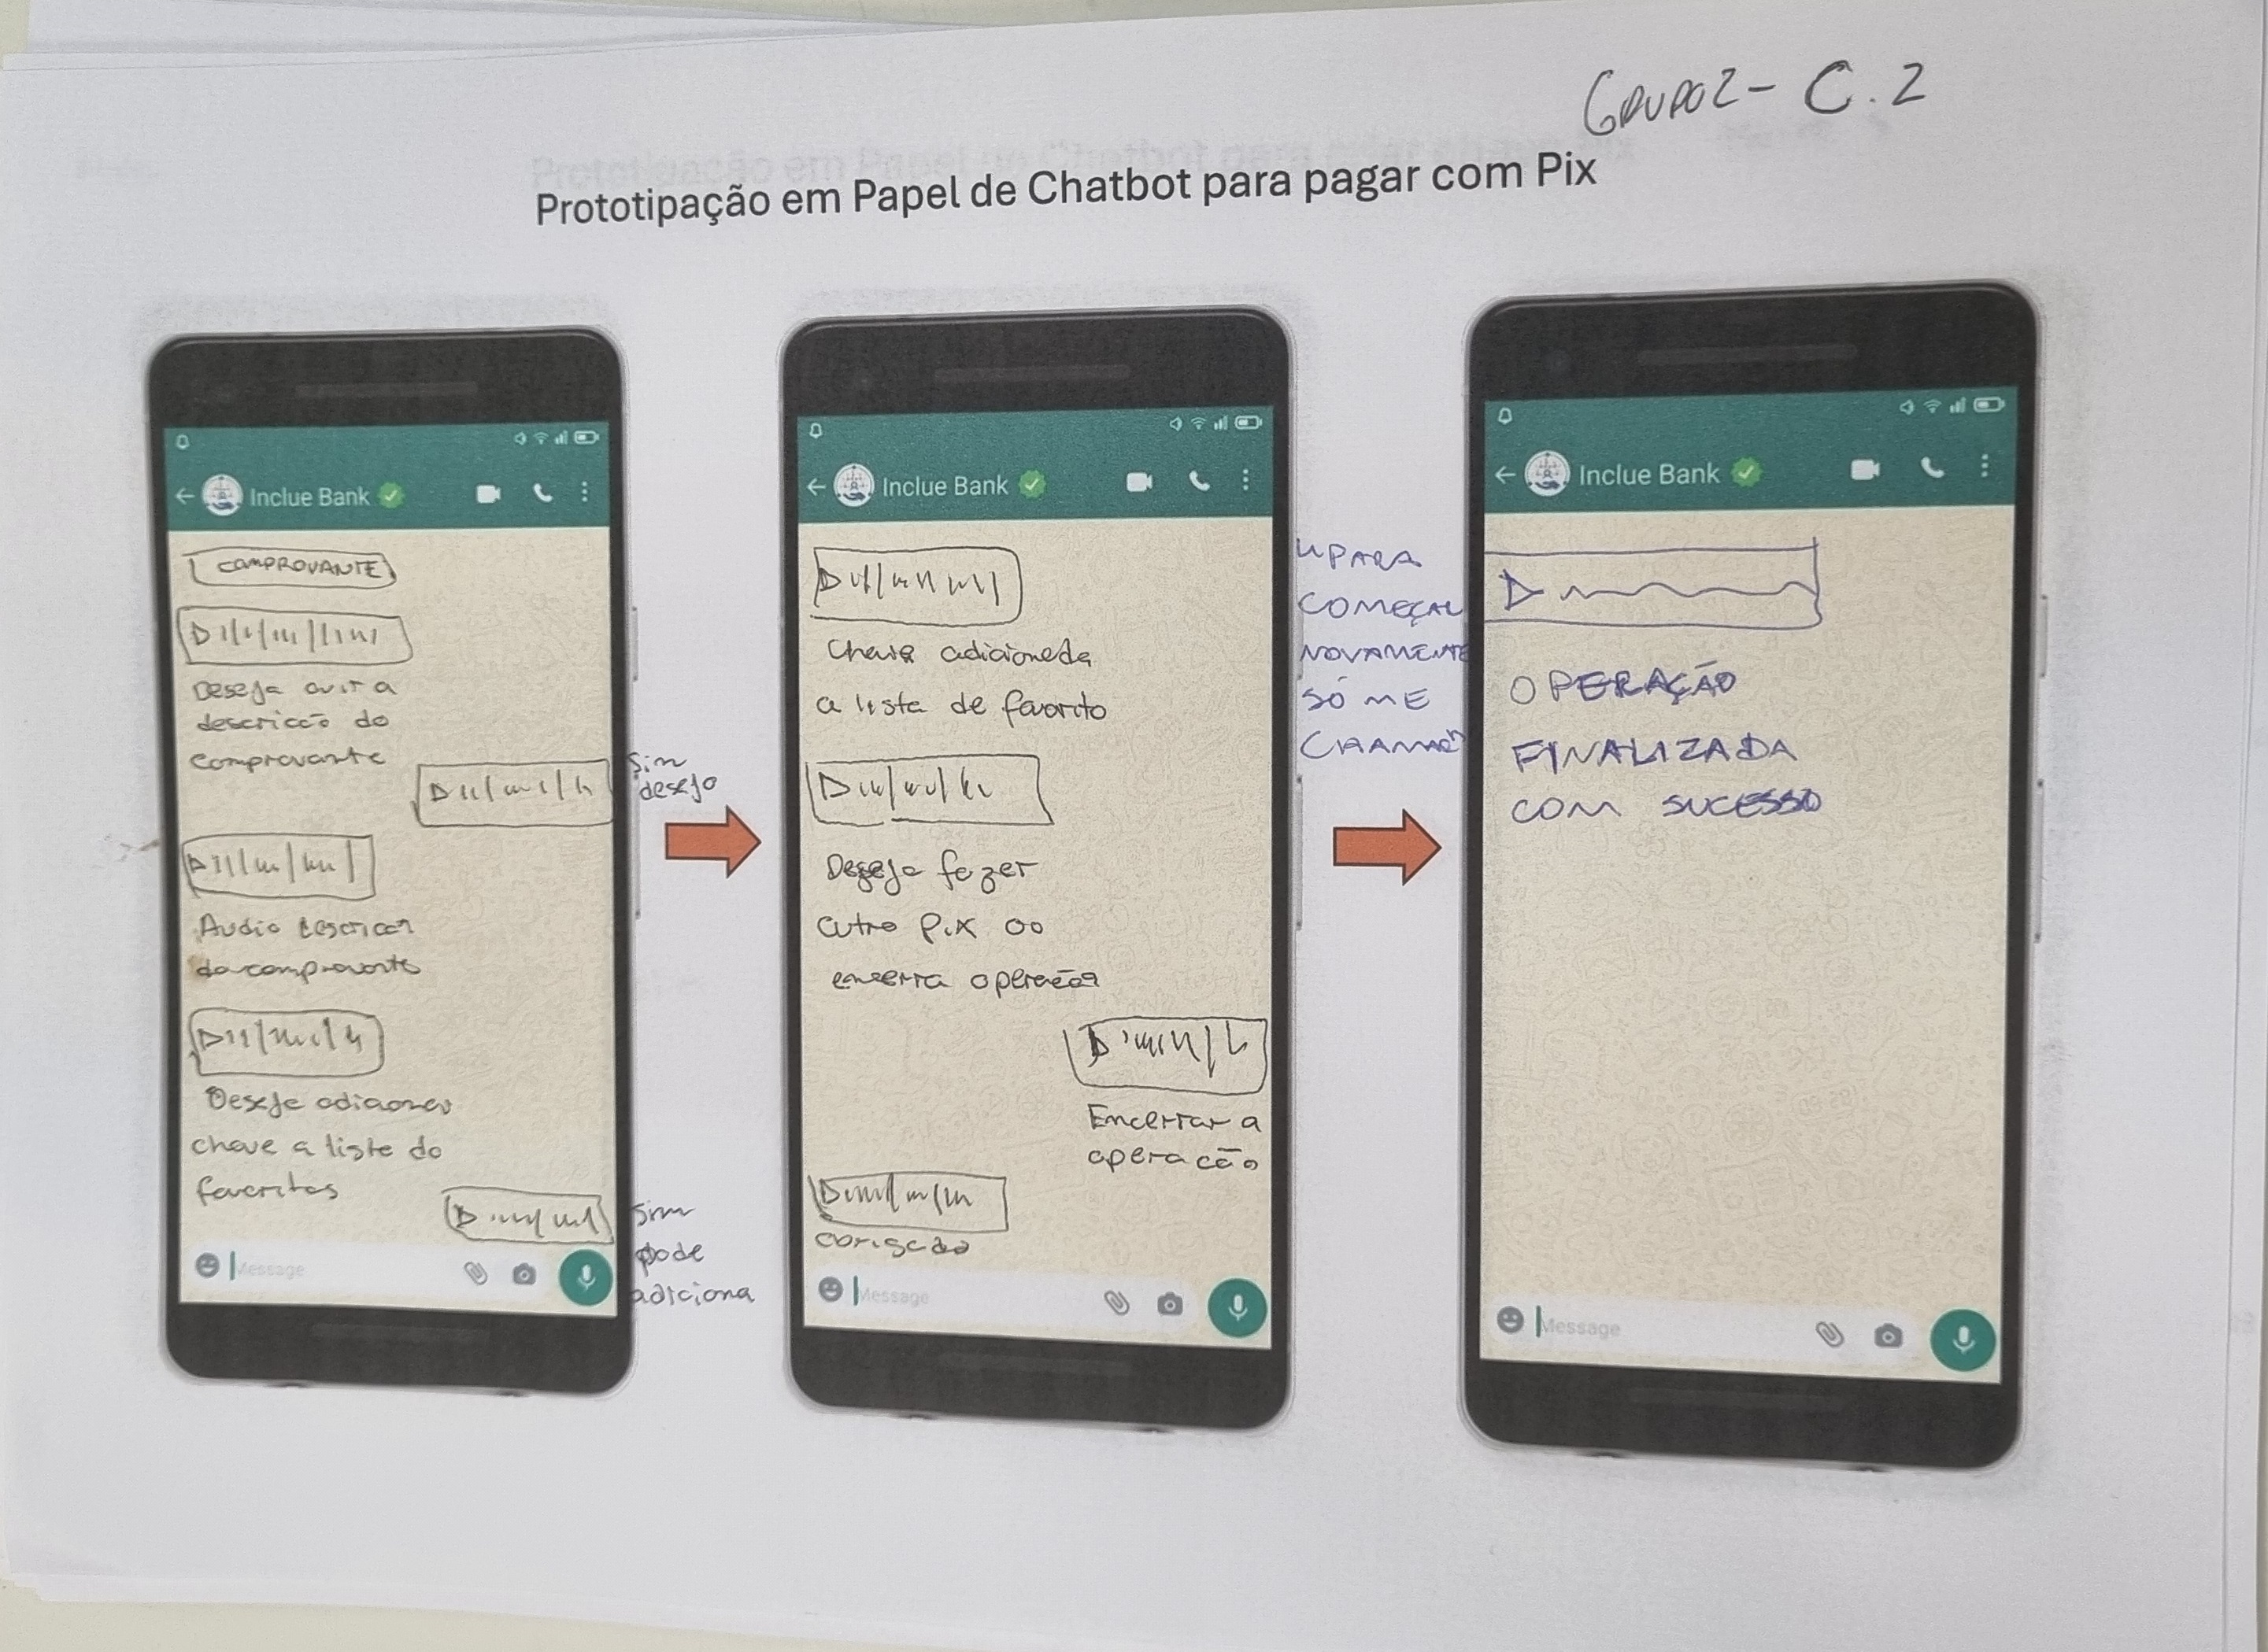 GRUPO2 - C.2
Prototipação em Papel de Chatbot para pagar com Pix
Inclue Bank
COMPROVANTE
Deseja ouir a
descricão do
comprovante
Sim
desejo
Audio
do comprovante
Deseja adicionar
chave a liste do
favoritos
Sim
pode
adiciona
Message
Inclue Bank
Chave adicionada
a liste de favorito
Deseja fazer
outro Pix ou
encerra operação
Encerrar a
operacão
obrigado
Message
PARA
COMEÇAR
NOVAMENTE
SÓ ME
CHAMAR
Inclue Bank
OPERAÇÃO
FINALIZADA
COM SUCESSO
Message